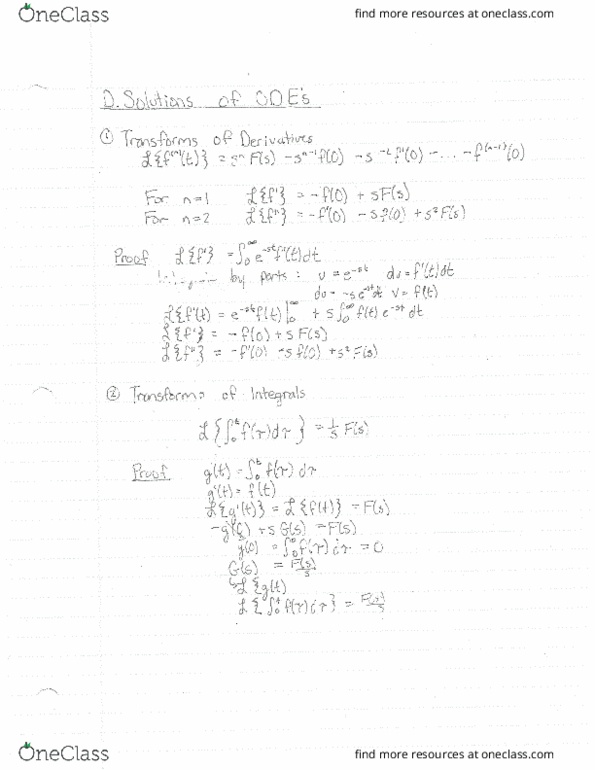 OneClass
find more resources at oneclass.com
D. Solutions of ODE's
① Transforms of Derivatives
ℒ{f⁽ⁿ⁾(t)} = sⁿ F(s) - sⁿ⁻¹ f(0) - s ⁻² f'(0) - ... - f⁽ⁿ⁻¹⁾(0)
For n=1 ℒ{f'} = -f(0) + sF(s)
For n=2 ℒ{f"} = -f'(0) - s f(0) + s² F(s)
Proof ℒ{f'} = ∫₀^∞ e^-st f'(t)dt
by parts: u = e^-st dv = f'(t)dt
du = -se^-st dt v = f(t)
ℒ{f'(t) = e^-st f(t)|₀^∞ + s ∫₀^∞ f(t) e^-st dt
ℒ{f'} = -f(0) + s F(s)
ℒ{f"} = -f'(0) - s f(0) + s² F(s)
② Transforms of Integrals
ℒ{∫₀^t f(τ)dτ} = 1/s F(s)
Proof g(t) = ∫₀^t f(τ) dτ
g'(t) = f(t)
ℒ{g'(t)} = ℒ{f(t)} = F(s)
-g( ) + s G(s) = F(s)
g(0) = ∫₀^0 f(τ) dτ = 0
G(s) = F(s)/s
ℒ{g(t)
ℒ{∫₀^t f(τ)dτ} = F(s)/s
OneClass
find more resources at oneclass.com